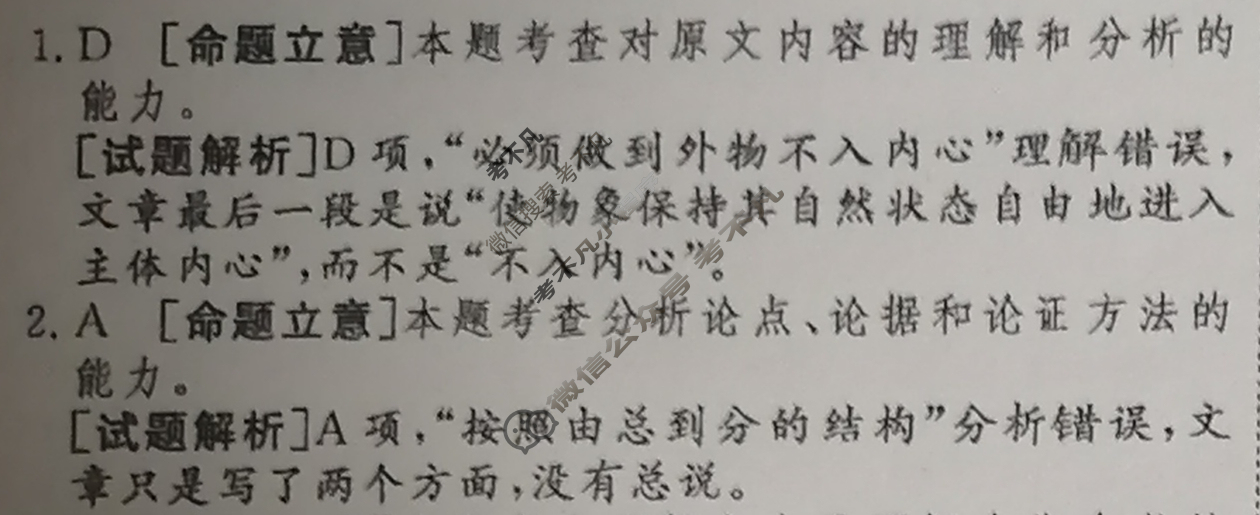 1. D [命题立意]本题考查对原文内容的理解和分析的
能力。
[试题解析]D项，“必须做到外物不入内心”理解错误，
文章最后一段是说“使物象保持其自然状态自由地进入
主体内心”，而不是“不入内心”。
2. A [命题立意]本题考查分析论点、论据和论证方法的
能力。
[试题解析]A项，“按照由总到分的结构”分析错误，文
章只是写了两个方面，没有总说。
考不凡
微信搜索 考不凡
考不凡
微信公众号 考不凡